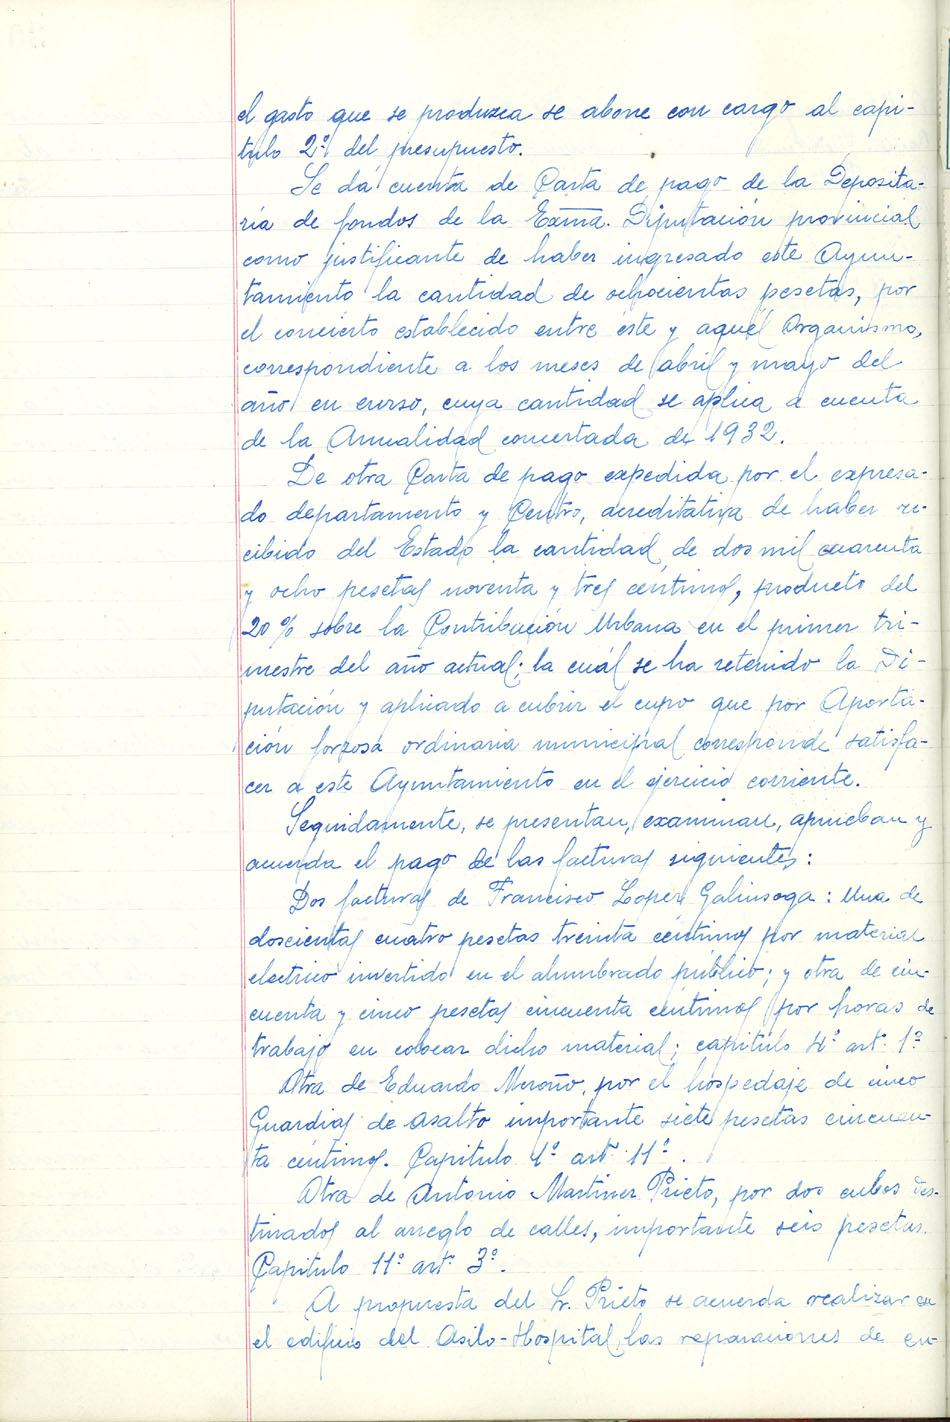 el gasto que se produzca se abone con cargo al capi-
tulo 2º del presupuesto.
Se dá cuenta de Carta de pago de la Deposita-
ría de fondos de la Exma. Diputación provincial
como justificante de haber ingresado este Ayun-
tamiento la cantidad de ochocientas pesetas, por
el concierto establecido entre éste y aquel Organismo,
correspondiente a los meses de abril y mayo del
año en curso, cuya cantidad se aplica a cuenta
de la Anualidad concertada de 1932.
De otra Carta de pago expedida por el expresa-
do departamento y Centro, acreditativa de haber re-
cibido del Estado la cantidad de dos mil cuarenta
y ocho pesetas noventa y tres céntimos, producto del
20 % sobre la Contribución Urbana en el primer tri-
mestre del año actual; la cuál se ha retenido la Di-
putación y aplicado a cubrir el cupo que por Aporta-
ción forzosa ordinaria municipal corresponde satisfa-
cer a este Ayuntamiento en el ejercicio corriente.
Seguidamente, se presentan, examinan, aprueban y
acuerda el pago de las facturas siguientes:
Dos facturas de Francisco Lopez Galinsoga: Una de
doscientas cuatro pesetas treinta céntimos por material
electrico invertido en el alumbrado público; y otra de cin-
cuenta y cinco pesetas cincuenta céntimos por horas de
trabajo en colocar dicho material; capitulo 4º artº 1º
Otra de Eduardo Meroño, por el hospedaje de cinco
Guardias de asalto importante siete pesetas cincuen-
ta céntimos. Capitulo 1º artº 11º.
Otra de Antonio Martinez Prieto, por dos cubos des-
tinados al arreglo de calles, importante seis pesetas.
Capitulo 11º artº 3º.
A propuesta del Sr. Prieto se acuerda realizar en
el edificio del Asilo-Hospital las reparaciones de en-